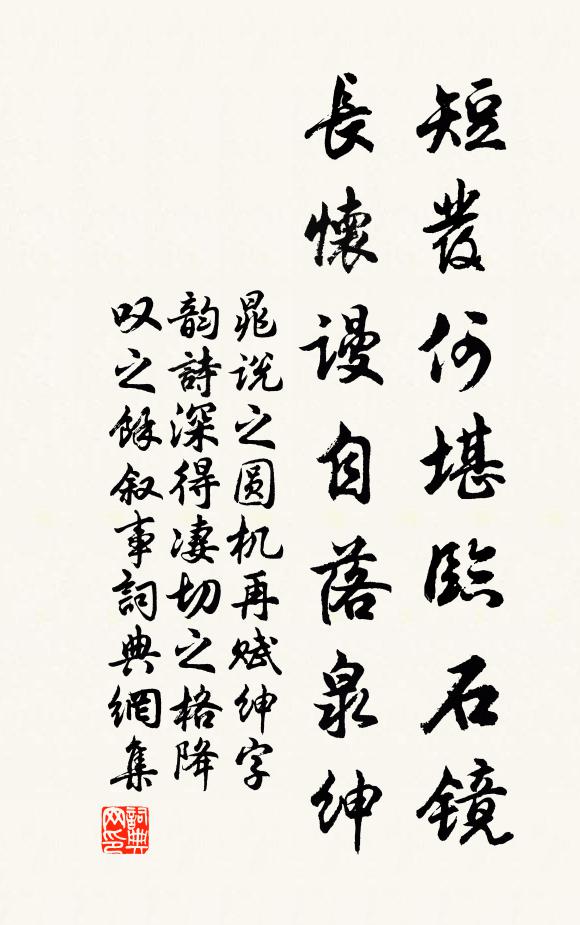 短发何堪臨石镜
長懷謾自落泉紳
晁说之圆机再赋紳字
韵詩深得凄切之格降
叹之餘叙事詞典網集
詞典網印